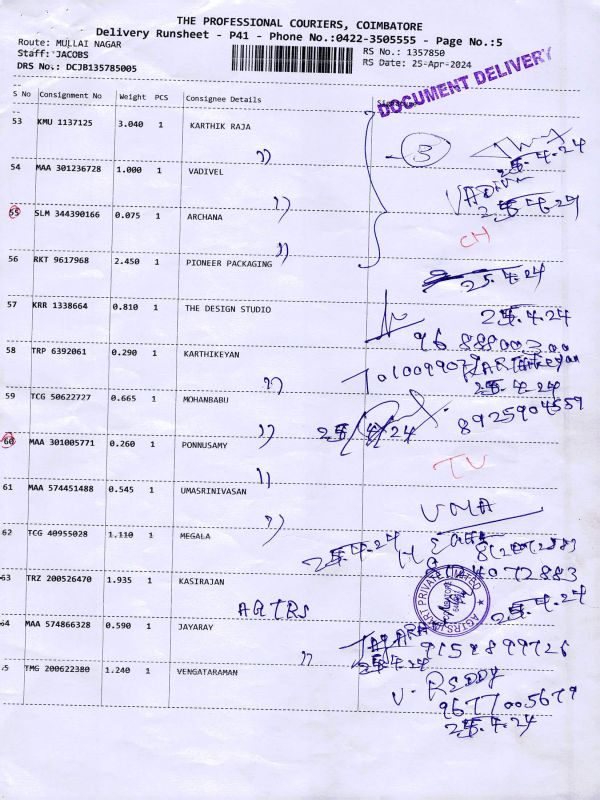 THE PROFESSIONAL COURIERS, COIMBATORE
Delivery Runsheet - P41 - Phone No.:0422-3505555 - Page No.:5
Route: MULLAI NAGAR
RS No.: 1357850
Staff: JACOBS
RS Date: 25-Apr-2024
DRS No.: DCJB135785005
DOCUMENT DELIVERY
S No Consignment No Weight PCS Consignee Details
53 KMU 1137125 3.040 1 KARTHIK RAJA
3
25.4.24
54 MAA 301236728 1.000 1 VADIVEL
25.4.24
55 SLM 344390166 0.075 1 ARCHANA
CH
56 RKT 9617968 2.450 1 PIONEER PACKAGING
25.4.24
57 KRR 1338664 0.810 1 THE DESIGN STUDIO
25.4.24
58 TRP 6392061 0.290 1 KARTHIKEYAN
25.4.24
59 TCG 50622727 0.665 1 MOHANBABU
25.4.24 8925904559
60 MAA 301005771 0.260 1 PONNUSAMY
61 MAA 574451488 0.545 1 UMASRINIVASAN
UMA
62 TCG 40955028 1.110 1 MEGALA
25.4.24
63 TRZ 200526470 1.935 1 KASIRAJAN
AGTRS
25.4.24
64 MAA 574866328 0.590 1 JAYARAY
25.4.24
TMG 200622380 1.240 1 VENGATARAMAN
V. REDDY
9677005679
25.4.24